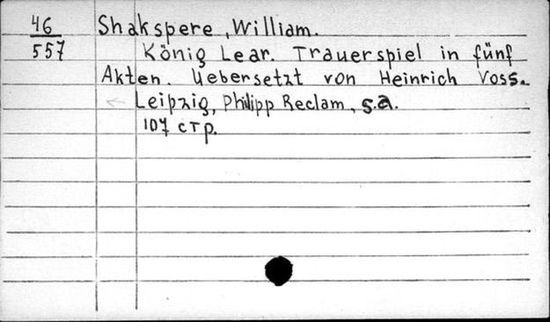 46 Shakspere, William.
557 König Lear. Trauerspiel in fünf
Akten. Uebersetzt von Heinrich Voss.
Leipzig, Philipp Reclam, s.a.
107 стр.